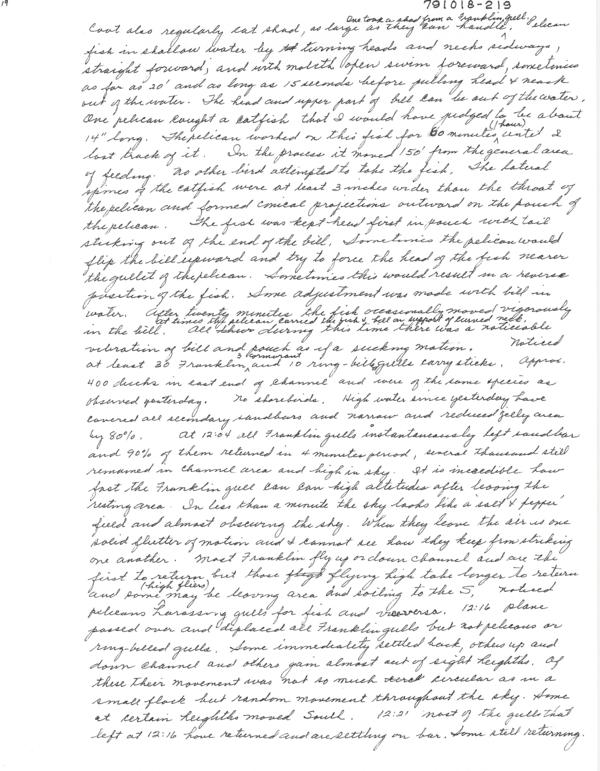 19
791018-219
One took a shad from a Franklin gull.
Coot also regularly eat shad, as large as they can handle. Pelican
fish in shallow water by turning heads and necks sideways,
straight forward, and with mouth open swim foreward, sometimes
as far as 20' and as long as 15 seconds before pulling head & neck
out of the water. The head and upper part of bill can be out of the water.
One pelican caught a catfish that I would have judged to be about
14" long. The pelican worked on this fish for 60 minutes (1 hour) until I
lost track of it. In the process it moved 150' from the general area
of feeding. No other bird attempted to take the fish. The lateral
spines of the catfish were at least 3 inches wider than the throat of
the pelican and formed conical projections outward on the pouch of
the pelican. The fish was kept head first in pouch with tail
sticking out of the end of the bill. Sometimes the pelican would
flip the bill upward and try to force the head of the fish nearer
the gullet of the pelican. Sometimes this would result in a reverse
position of the fish. Some adjustment was made with bill in
water. After twenty minutes the fish occasionally moved vigorously
at times the pelican carried the fish & bill on support of curved neck.
in the bill. All during this time there was a noticeable
vibration of bill and pouch as if a sucking motion. Noticed
at least 30 Franklin, cormorant and 10 ring-bill gulls carry sticks. Approx.
400 ducks in east end of channel and were of the same species as
observed yesterday. No shorebirds. High water since yesterday have
covered all secondary sandbars and narrow and reduced jelly area
by 80%. At 12:04 all Franklin gulls instantaneously left sandbar
and 90% of them returned in 4 minutes period, several thousand still
remained in channel area and high in sky. It is incredible how
fast the Franklin gull can gain high altitudes after leaving the
resting area. In less than a minute the sky looks like a 'salt & pepper'
field and almost obscuring the sky. When they leave the air is one
solid flutter of motion and I cannot see how they keep from striking
one another. Most Franklin fly up or down channel and are the
first to return but those flying high take longer to return
(high fliers)
and some may be leaving area and sailing to the S, noticed
pelicans harassing gulls for fish and viceversa. 12:16 plane
passed over and displaced all Franklin gulls but not pelicans or
ring-billed gulls. Some immediately settled back, others up and
down channel and others gain almost out of sight heighths. Of
these their movement was not so much circular as in a
small flock but random movement throughout the sky. Some
at certain heighths moved South. 12:21 most of the gulls that
left at 12:16 have returned and are settling on bar. Some still returning.